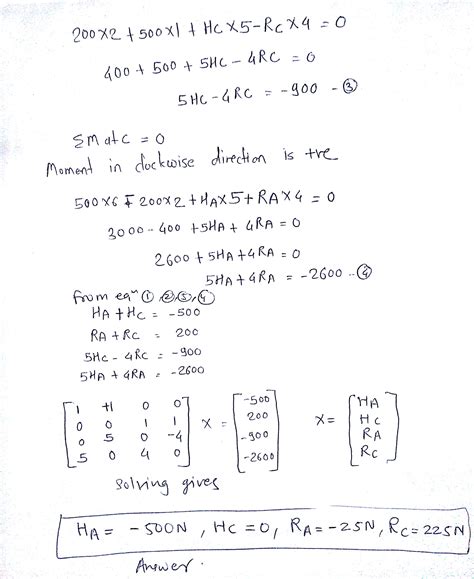 200×2 + 500×1 + HC×5 - RC×4 = 0
400 + 500 + 5HC - 4RC = 0
5HC - 4RC = -900 - ③
ΣM at C = 0
Moment in clockwise direction is +ve
500×6 - 200×2 + HA×5 + RA×4 = 0
3000 - 400 + 5HA + 4RA = 0
2600 + 5HA + 4RA = 0
5HA + 4RA = -2600 .. ④
from eqⁿ ①,②,③,④
HA + HC = -500
RA + RC = 200
5HC - 4RC = -900
5HA + 4RA = -2600
[1 +1 0 0] [-500] [HA]
[0 0 1 1] X = [200] X = [HC]
[0 5 0 -4] [-900] [RA]
[5 0 4 0] [-2600] [RC]
solving gives
HA = -500N, HC = 0, RA = -25N, RC = 225N
Answer.